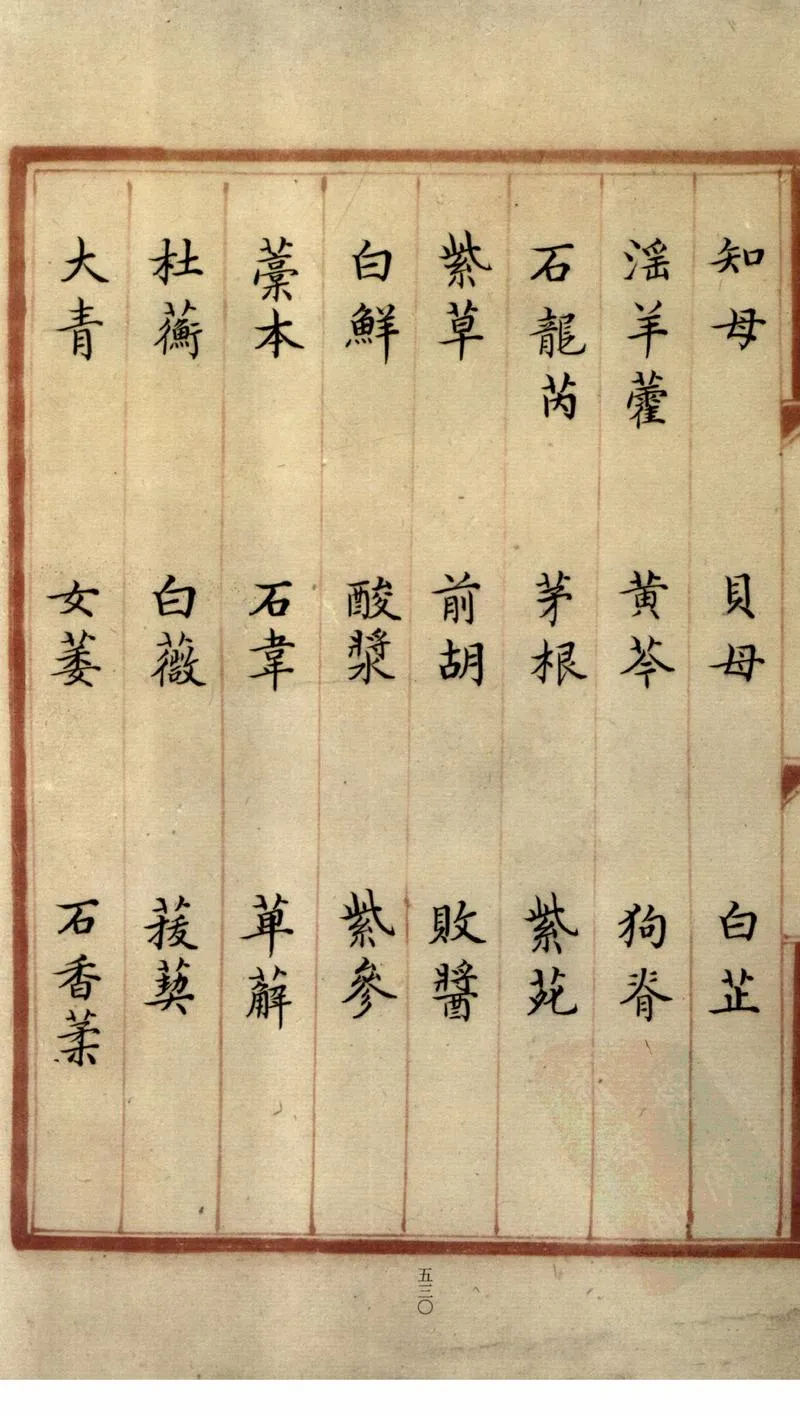 知母 貝母 白芷
淫羊藿 黄芩 狗脊
石龍芮 茅根 紫菀
紫草 前胡 敗醬
白鮮 酸漿 紫參
藁本 石韋 萆薢
杜蘅 白薇 菝葜
大青 女萎 石香葇
五三〇